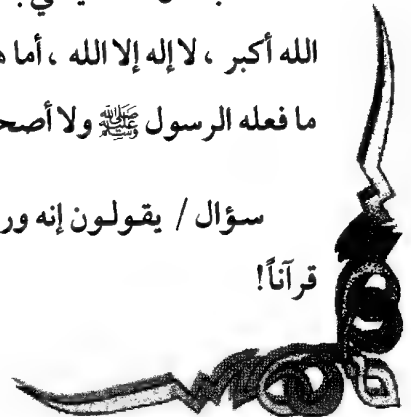 الله أكبر ، لا إله إلا الله ، أما
ما فعله الرسول ﷺ ولا
سؤال / يقولون إنه
قرآناً!